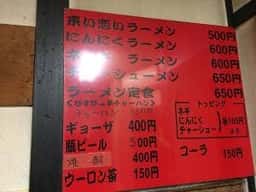 赤い恋いラーメン 500円
にんにくラーメン 600円
ネ ラーメン 600円
チ シューメン 650円
ラーメン定食 650円
ギョーザ 400円
瓶ビール 500円
冷酎 400円
ウーロン茶 150円
トッピング
ネギ
にんにく
チャーシュー
各100円
コーラ 150円